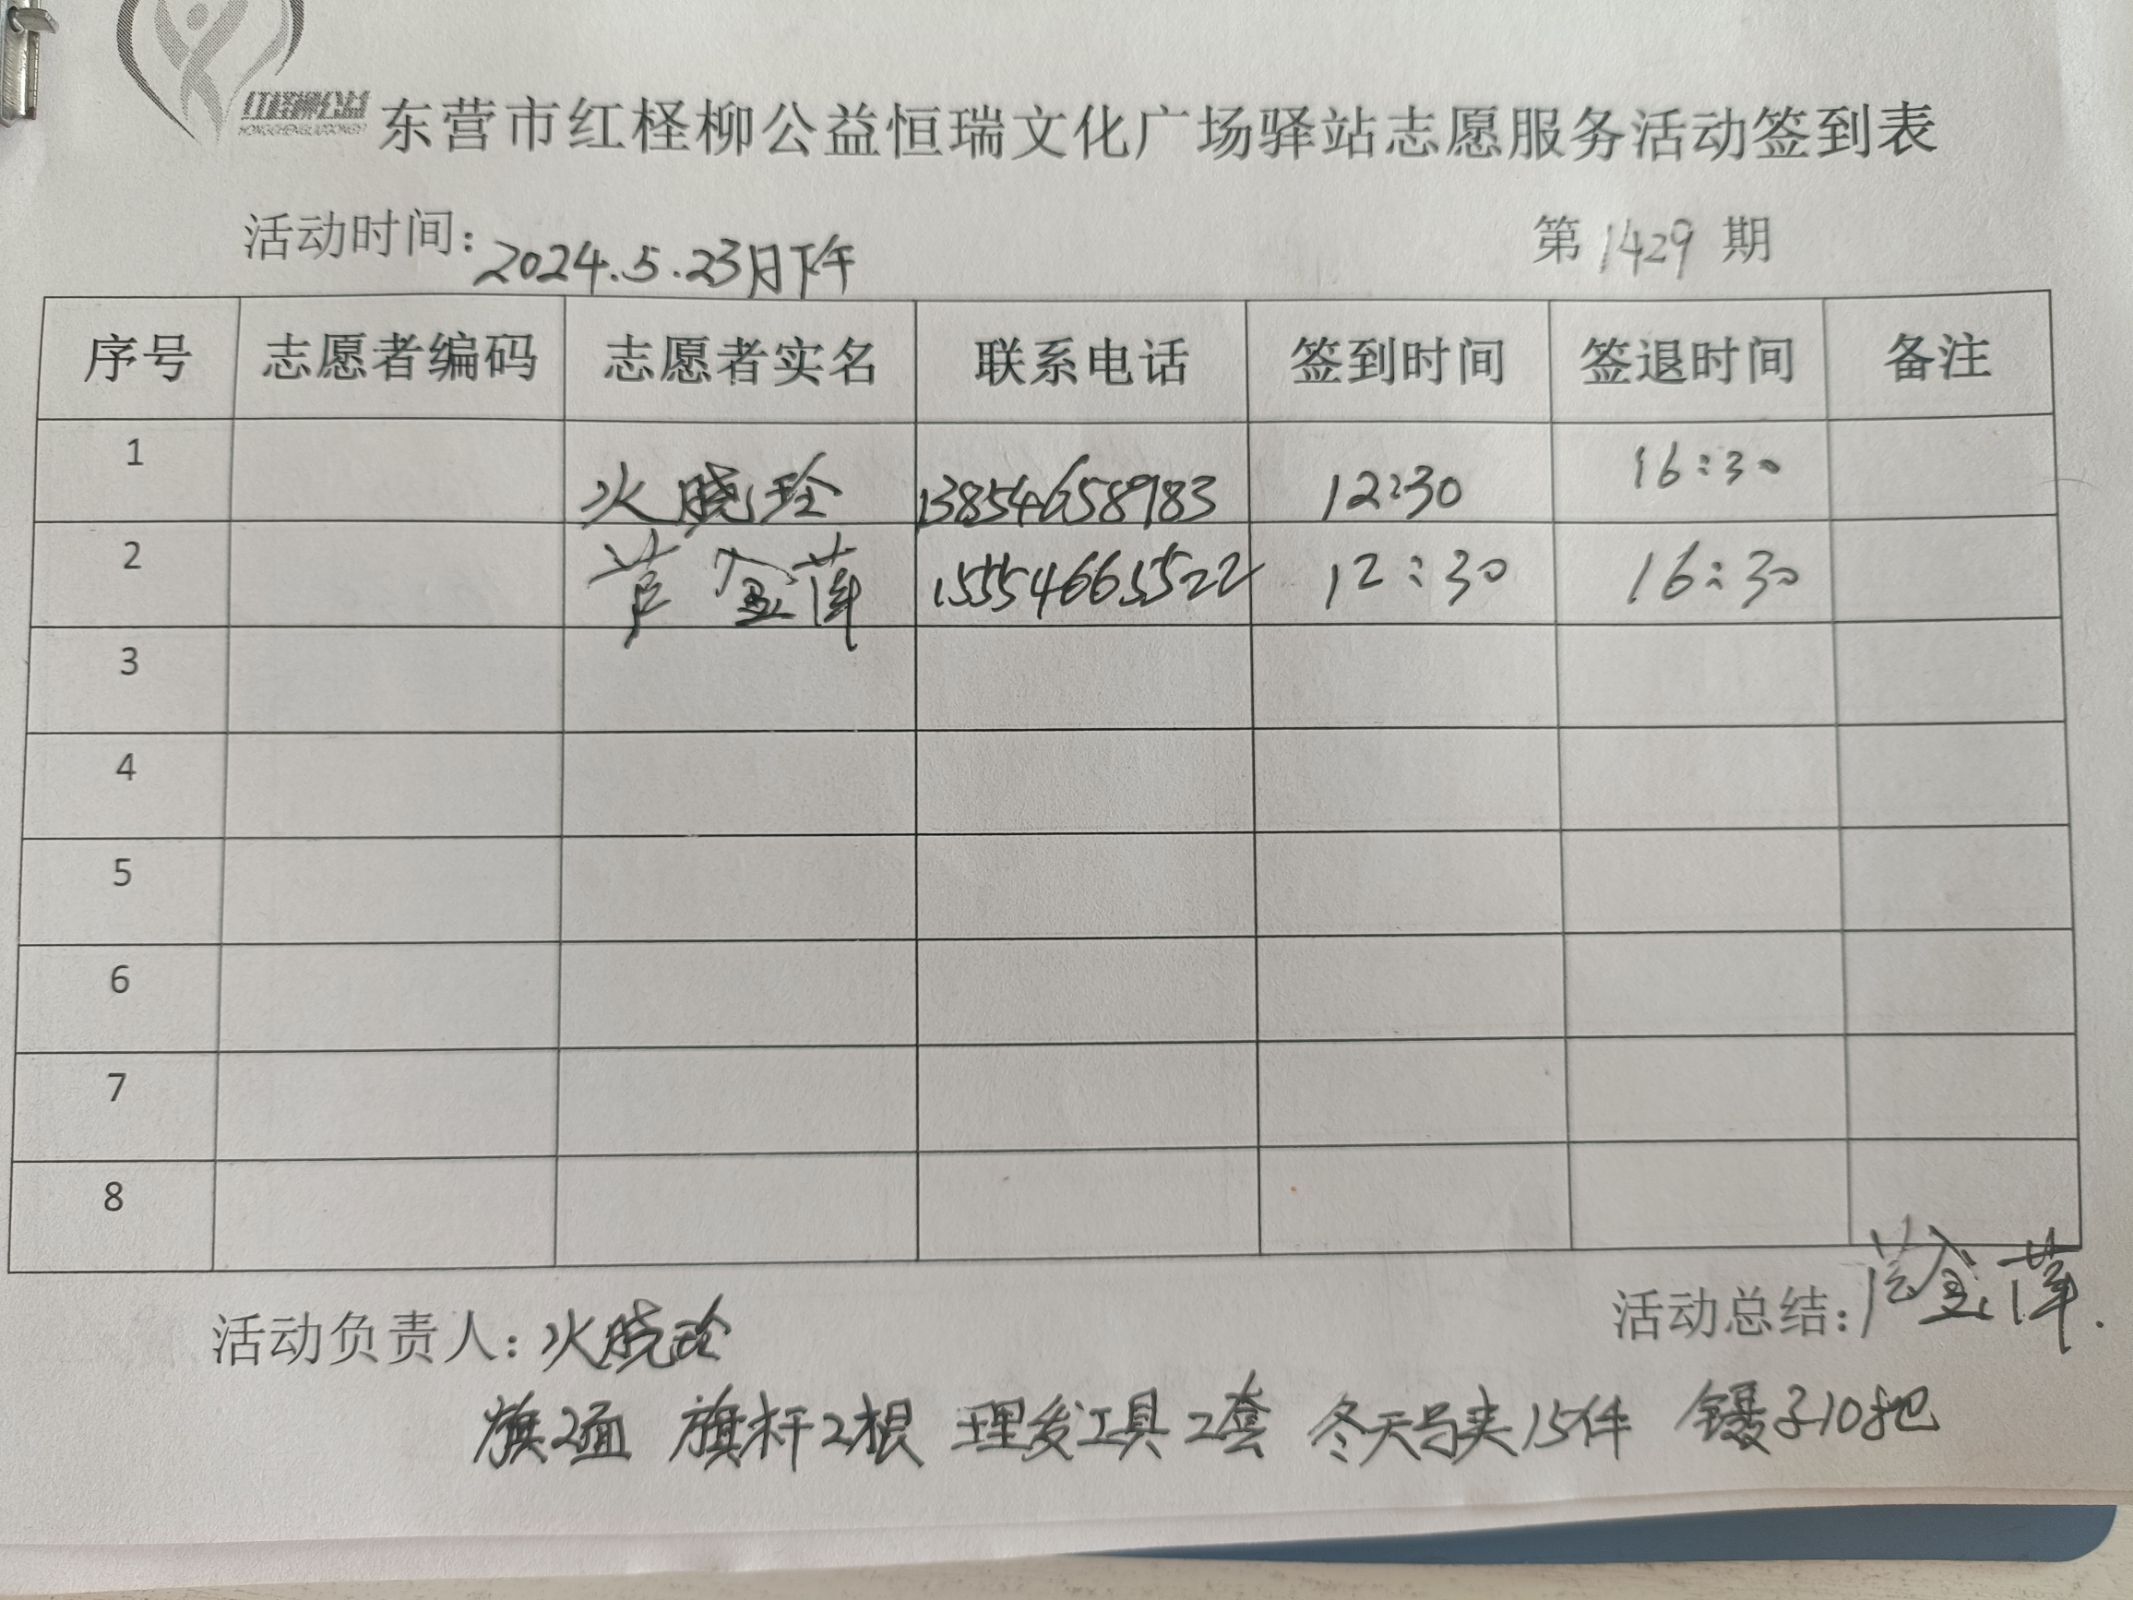 红柽柳公益
HONGCHENGLIUGONGYI
东营市红柽柳公益恒瑞文化广场驿站志愿服务活动签到表
活动时间：2024.5.23日下午 第1429期
序号 志愿者编码 志愿者实名 联系电话 签到时间 签退时间 备注
1 火晓玲 13854658983 12:30 16:30
2 芦金萍 15554665522 12:30 16:30
3
4
5
6
7
8
活动负责人：火晓玲 活动总结：芦金萍.
旗2面 旗杆2根 理发工具2套 冬天马夹15件 镊子10把